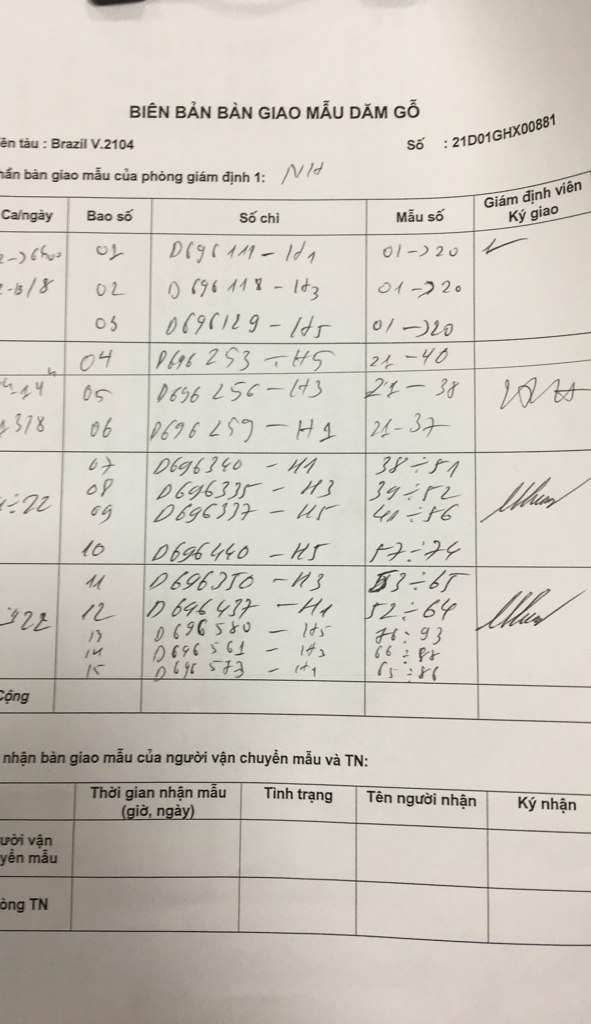 BIÊN BẢN BÀN GIAO MẪU DĂM GỖ
ên tàu : Brazil V.2104
Số : 21D01GHX00881
hần bàn giao mẫu của phòng giám định 1:
Ca/ngày Bao số Số chì Mẫu số Giám định viên Ký giao
01 D696111 - H1 01->20
02 D696118 - H3 01->20
03 D696129 - H5 01->20
04 D696253 - H5 21-40
05 D696256 - H3 21-38
06 D696259 - H1 21-37
07 D696340 - H1 38÷51
08 D696335 - H3 39÷52
09 D696337 - H5 41÷56
10 D696440 - H5 57÷74
11 D696350 - H3 53÷65
12 D696437 - H1 52÷64
13 D696580 - H5 76÷93
14 D696561 - H3 66÷88
15 D696573 - H1 65÷86
Cộng
nhận bàn giao mẫu của người vận chuyển mẫu và TN:
Thời gian nhận mẫu (giờ, ngày) Tình trạng Tên người nhận Ký nhận
ười vận
yển mẫu
òng TN